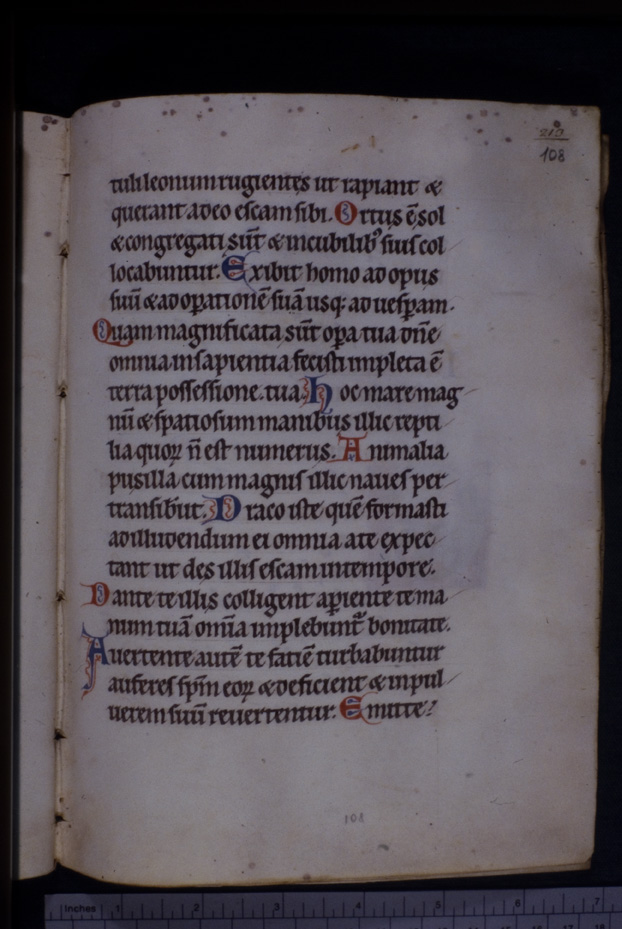 210
108
tuli leonum rugientes ut rapiant &
querant a deo escam sibi. Ortus ē sol
& congregati sūt & in cubilib; suis col
locabuntur. Exibit homo ad opus
suū & ad oꝑationē suā usq; ad uesꝑam.
Quam magnificata sūt oꝑa tua dn̄e
omnia in sapientia fecisti impleta ē
terra possessione tua. Hoc mare mag
nū & spatiosum manibus illic repti
lia quoꝝ n̄ est numerus. Animalia
pusilla cum magnis illic naues per
transibūt. Draco iste quē formasti
ad illudendum ei omnia a te expec
tant ut des illis escam in tempore.
Dante te illis colligent aꝑiente te ma
num tuā om̄ia implebunt᷑ bonitate.
Auertente autē te faciē turbabuntur
auferes sp̄m eoꝝ & deficient & in pul
uerem suū reuertentur. Emitte
108
Inches 1 2 3 4 5 6 7